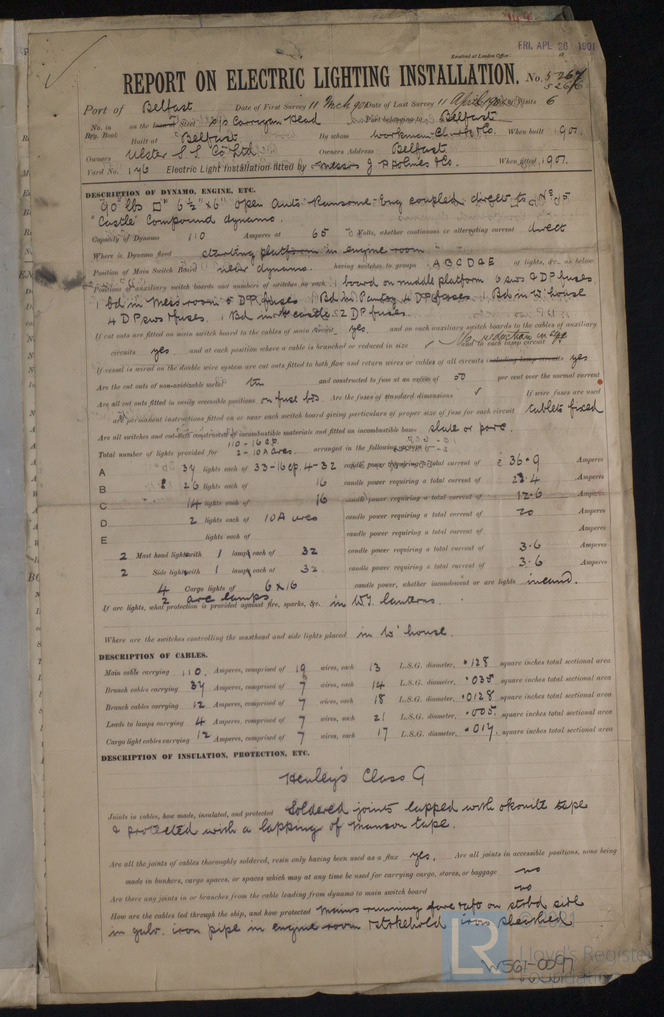 FRI. APL 26 1901
Received at London Office
REPORT ON ELECTRIC LIGHTING INSTALLATION. No. 5267
5266
Port of Belfast Date of First Survey 11 Mch 901 Date of Last Survey 11 April 1901 No. of Visits 6
No. in Reg. Book on the Iron or Steel S/S Carrigan Head Port belonging to Belfast
Built at Belfast By whom Workman Clark & Co. When built 1901
Owners Ulster S.S. Co Ltd Owners Address Belfast
Yard No. 176 Electric Light Installation fitted by Messrs J. H. Holmes & Co. When fitted 1901
DESCRIPTION OF DYNAMO, ENGINE, ETC.
90 lbs 6½" x 6" Open Auto Ransome Eng coupled direct to
"Castle" Compound dynamo.
Capacity of Dynamo 110 Amperes at 65 Volts, whether continuous or alternating current direct
Where is Dynamo fixed starting platform in engine room
Position of Main Switch Board near dynamo. having switches to groups A B C D & E of lights, &c., as below
Position of auxiliary switch boards and numbers of switches on each 1 board on middle platform 6 sws & DP fuses
1 bd in Mess room 5 DP fuses 1 Bd in Pantry 4 DP fuses 1 Bd in W' house
4 DP sws & fuses. 1 Bd in castle 2 DP fuses.
If cut outs are fitted on main switch board to the cables of main circuit yes. and on each auxiliary switch boards to the cables of auxiliary
circuits yes and at each position where a cable is branched or reduced in size ✓ and to each lamp circuit
If vessel is wired on the double wire system are cut outs fitted to both flow and return wires or cables of all circuits including lamp circuits yes
Are the cut outs of non-oxidizable metal tin and constructed to fuse at an excess of 50 per cent over the normal current
Are all cut outs fitted in easily accessible positions on fuse bds. Are the fuses of standard dimensions ✓ If wire fuses are used
are permanent instructions fitted on or near each switch board giving particulars of proper size of fuse for each circuit tablets fixed
Are all switches and cut-outs constructed of incombustible materials and fitted on incombustible bases slate or porc.
110-16 cp.
Total number of lights provided for 2-10A arcs. arranged in the following groups :—
A 37 lights each of 33-16 cp. 4-32 candle power requiring a total current of 36.9 Amperes
B 26 lights each of 16 candle power requiring a total current of 23.4 Amperes
C 14 lights each of 16 candle power requiring a total current of 12.6 Amperes
D 2 lights each of 10A arcs candle power requiring a total current of 20 Amperes
E lights each of candle power requiring a total current of Amperes
2 Mast head light with 1 lamp each of 32 candle power requiring a total current of 3.6 Amperes
2 Side light with 1 lamp each of 32 candle power requiring a total current of 3.6 Amperes
4 Cargo lights of 6 x 16 candle power, whether incandescent or arc lights incand.
2 arc lamps
If arc lights, what protection is provided against fire, sparks, &c. in W.T. lanterns.
Where are the switches controlling the masthead and side lights placed in W' house.
DESCRIPTION OF CABLES.
Main cable carrying 110. Amperes, comprised of 19 wires, each 13 L.S.G. diameter, .128 square inches total sectional area
Branch cables carrying 37 Amperes, comprised of 7 wires, each 14 L.S.G. diameter, .035 square inches total sectional area
Branch cables carrying 12 Amperes, comprised of 7 wires, each 18 L.S.G. diameter, .0128 square inches total sectional area
Leads to lamps carrying 4 Amperes, comprised of 7 wires, each 21 L.S.G. diameter, .005. square inches total sectional area
Cargo light cables carrying 12 Amperes, comprised of 7 wires, each 17 L.S.G. diameter, .017, square inches total sectional area
DESCRIPTION OF INSULATION, PROTECTION, ETC.
Henley's Class G
Joints in cables, how made, insulated, and protected Soldered joints lapped with okonite tape
& protected with a lapping of manson tape.
Are all the joints of cables thoroughly soldered, resin only having been used as a flux yes. Are all joints in accessible positions, none being
made in bunkers, cargo spaces, or spaces which may at any time be used for carrying cargo, stores, or baggage no
Are there any joints in or branches from the cable leading from dynamo to main switch board no
How are the cables led through the ship, and how protected Mains running fore & aft on stbd side
in galv. iron pipe in engine room & stokehold iron sheathed
LR
© 2021
Lloyd's Register
Foundation
W561-0097